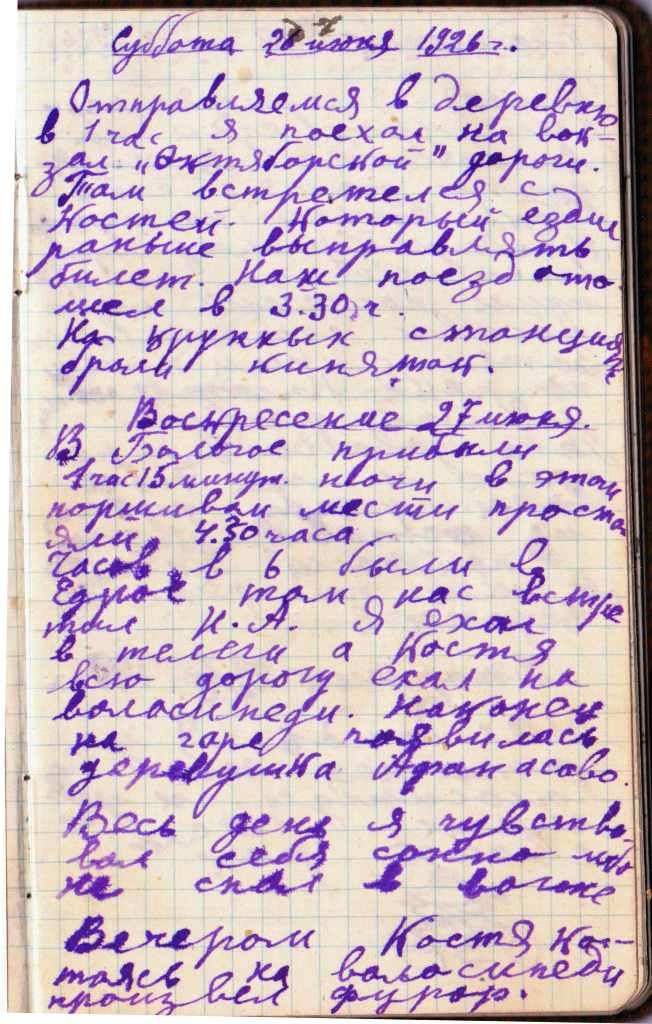 Суббота 26 июня 1926 г.
Отправляемся в деревню
в 1 час я поехал на вок-
зал „Октяборской" дороги.
Там встретелся с
Костей. Который ездил
раньше выправлять
билет. Наш поезд ото
шел в 3.30 ч.
На крупных станциях
брали кипяток.
Воскресение 27 июня.
В Бологое прибыли
1 час 15 минут. ночи в этом
поршивом мести простоя
яли 4.30 часа
Часов в 6 были в
Едрое там нас встре
тил Н.А. Я ехал
в телеги а Костя
всю дорогу ехал на
волосипеди. Наконец
на горе появилась
деревушка Афанасово.
Весь день я чувство
вал себя сонно ибо
не спал в вагоне
Вечером Костя ко-
таясь на волосипеди
произвел фурор.